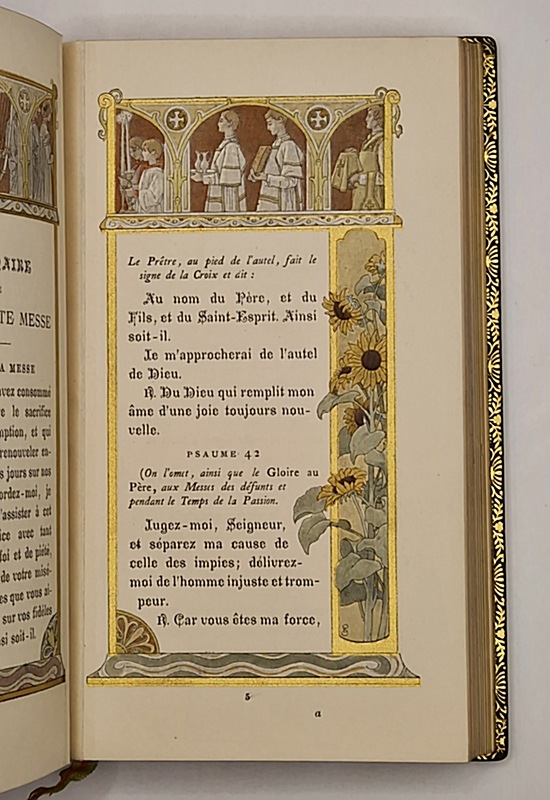 TE MESSE
A MESSE
vez consommé
re le sacrifice
mption, et qui
renouveler en-
s jours sur nos
ordez-moi, je
'assister à cet
ice avec tant
foi et de piété,
de votre misé-
es que vous ai-
sur vos fidèles
si soit-il.
Le Prêtre, au pied de l'autel, fait le
signe de la Croix et dit :
Au nom du Père, et du
Fils, et du Saint-Esprit. Ainsi
soit-il.
Je m'approcherai de l'autel
de Dieu.
℟. Du Dieu qui remplit mon
âme d'une joie toujours nou-
velle.
PSAUME 42
(On l'omet, ainsi que le Gloire au
Père, aux Messes des défunts et
pendant le Temps de la Passion.
Jugez-moi, Seigneur,
et séparez ma cause de
celle des impies; délivrez-
moi de l'homme injuste et trom-
peur.
℟. Car vous êtes ma force,
5
a